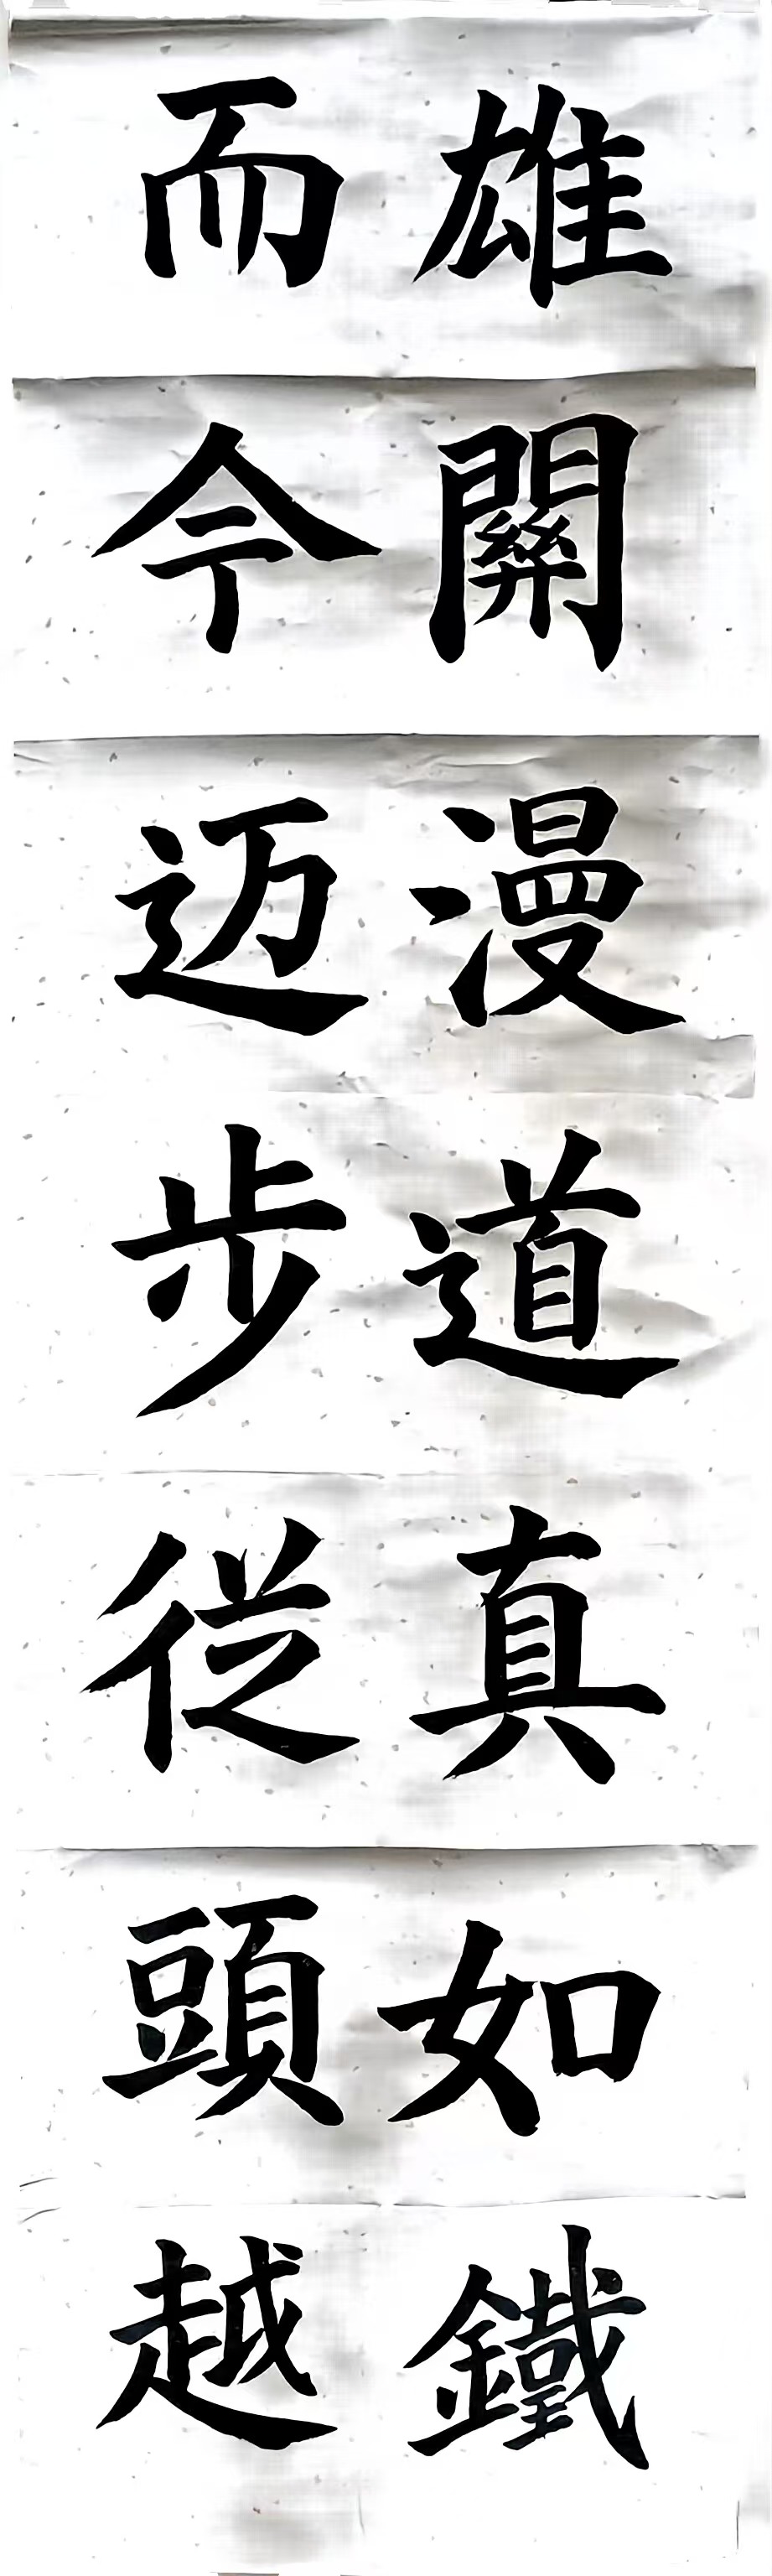 雄關漫道真如鐵
而今迈步從頭越